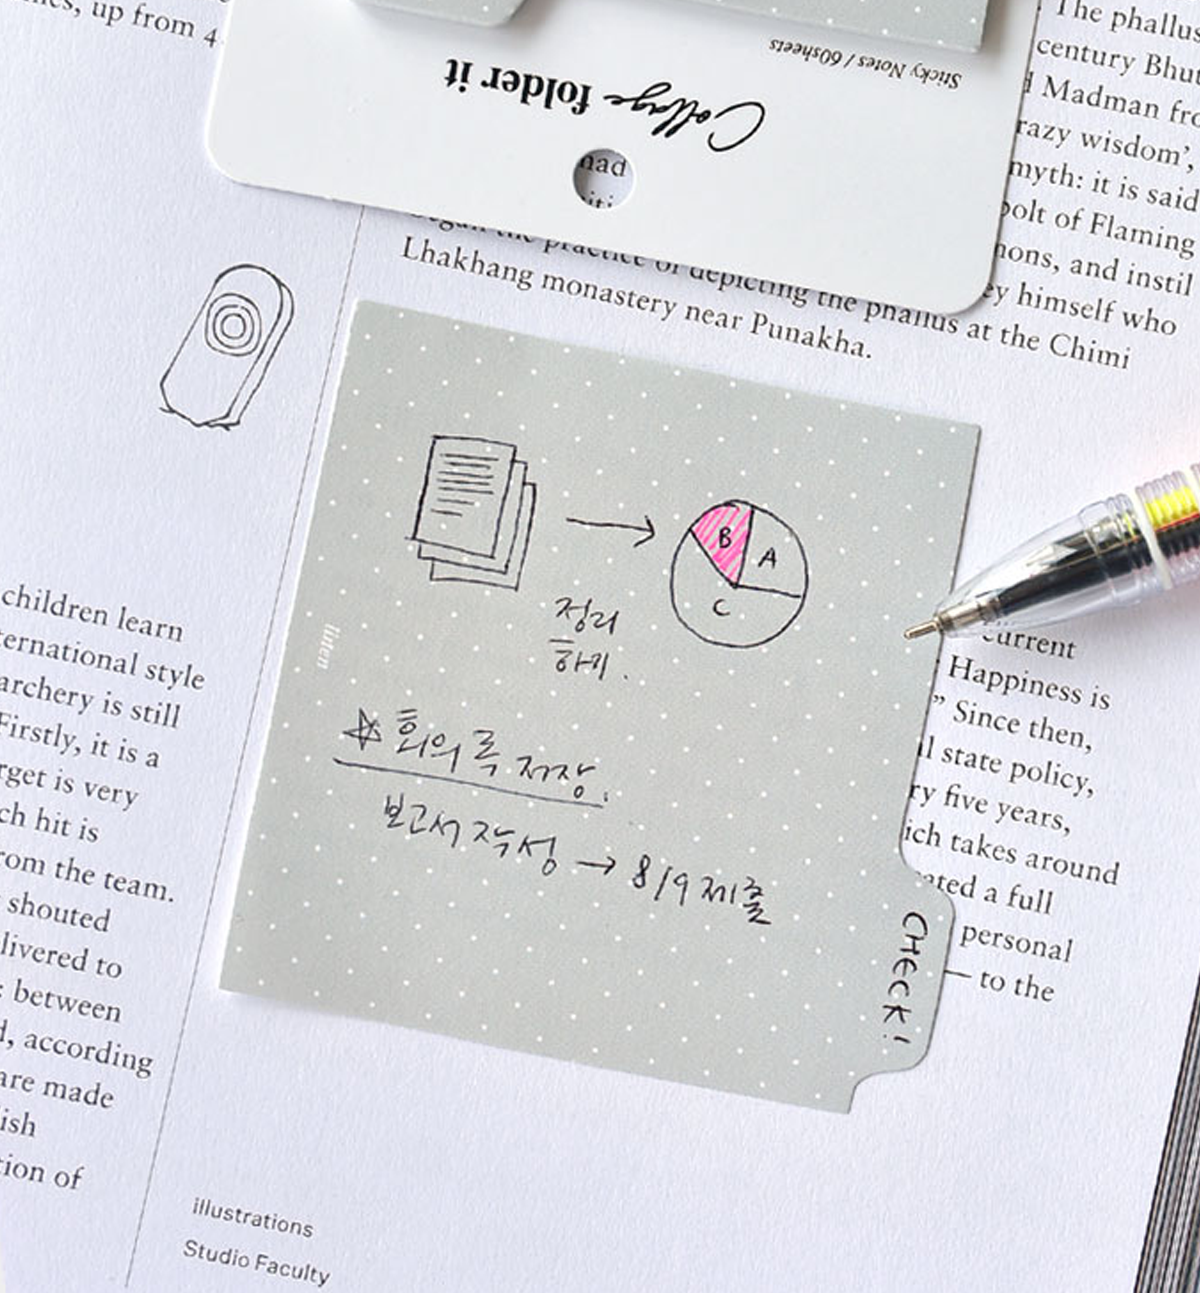 es, up from 4
Sticky Notes / 60sheets
Collage folder it
had
The phallus
century Bhut
Madman fro
razy wisdom’,
myth: it is said
bolt of Flaming
mons, and instil
ey himself who
began the practice of depicting the phallus at the Chimi
Lhakhang monastery near Punakha.
B
A
C
정리
하기.
☆ 회의록 저장.
보고서 작성 → 8/9 제출
CHECK!
iuten
children learn
ternational style
archery is still
Firstly, it is a
rget is very
ch hit is
rom the team.
shouted
livered to
: between
d, according
are made
ish
tion of
current
Happiness is
” Since then,
l state policy,
ry five years,
ich takes around
ated a full
personal
— to the
illustrations
Studio Faculty